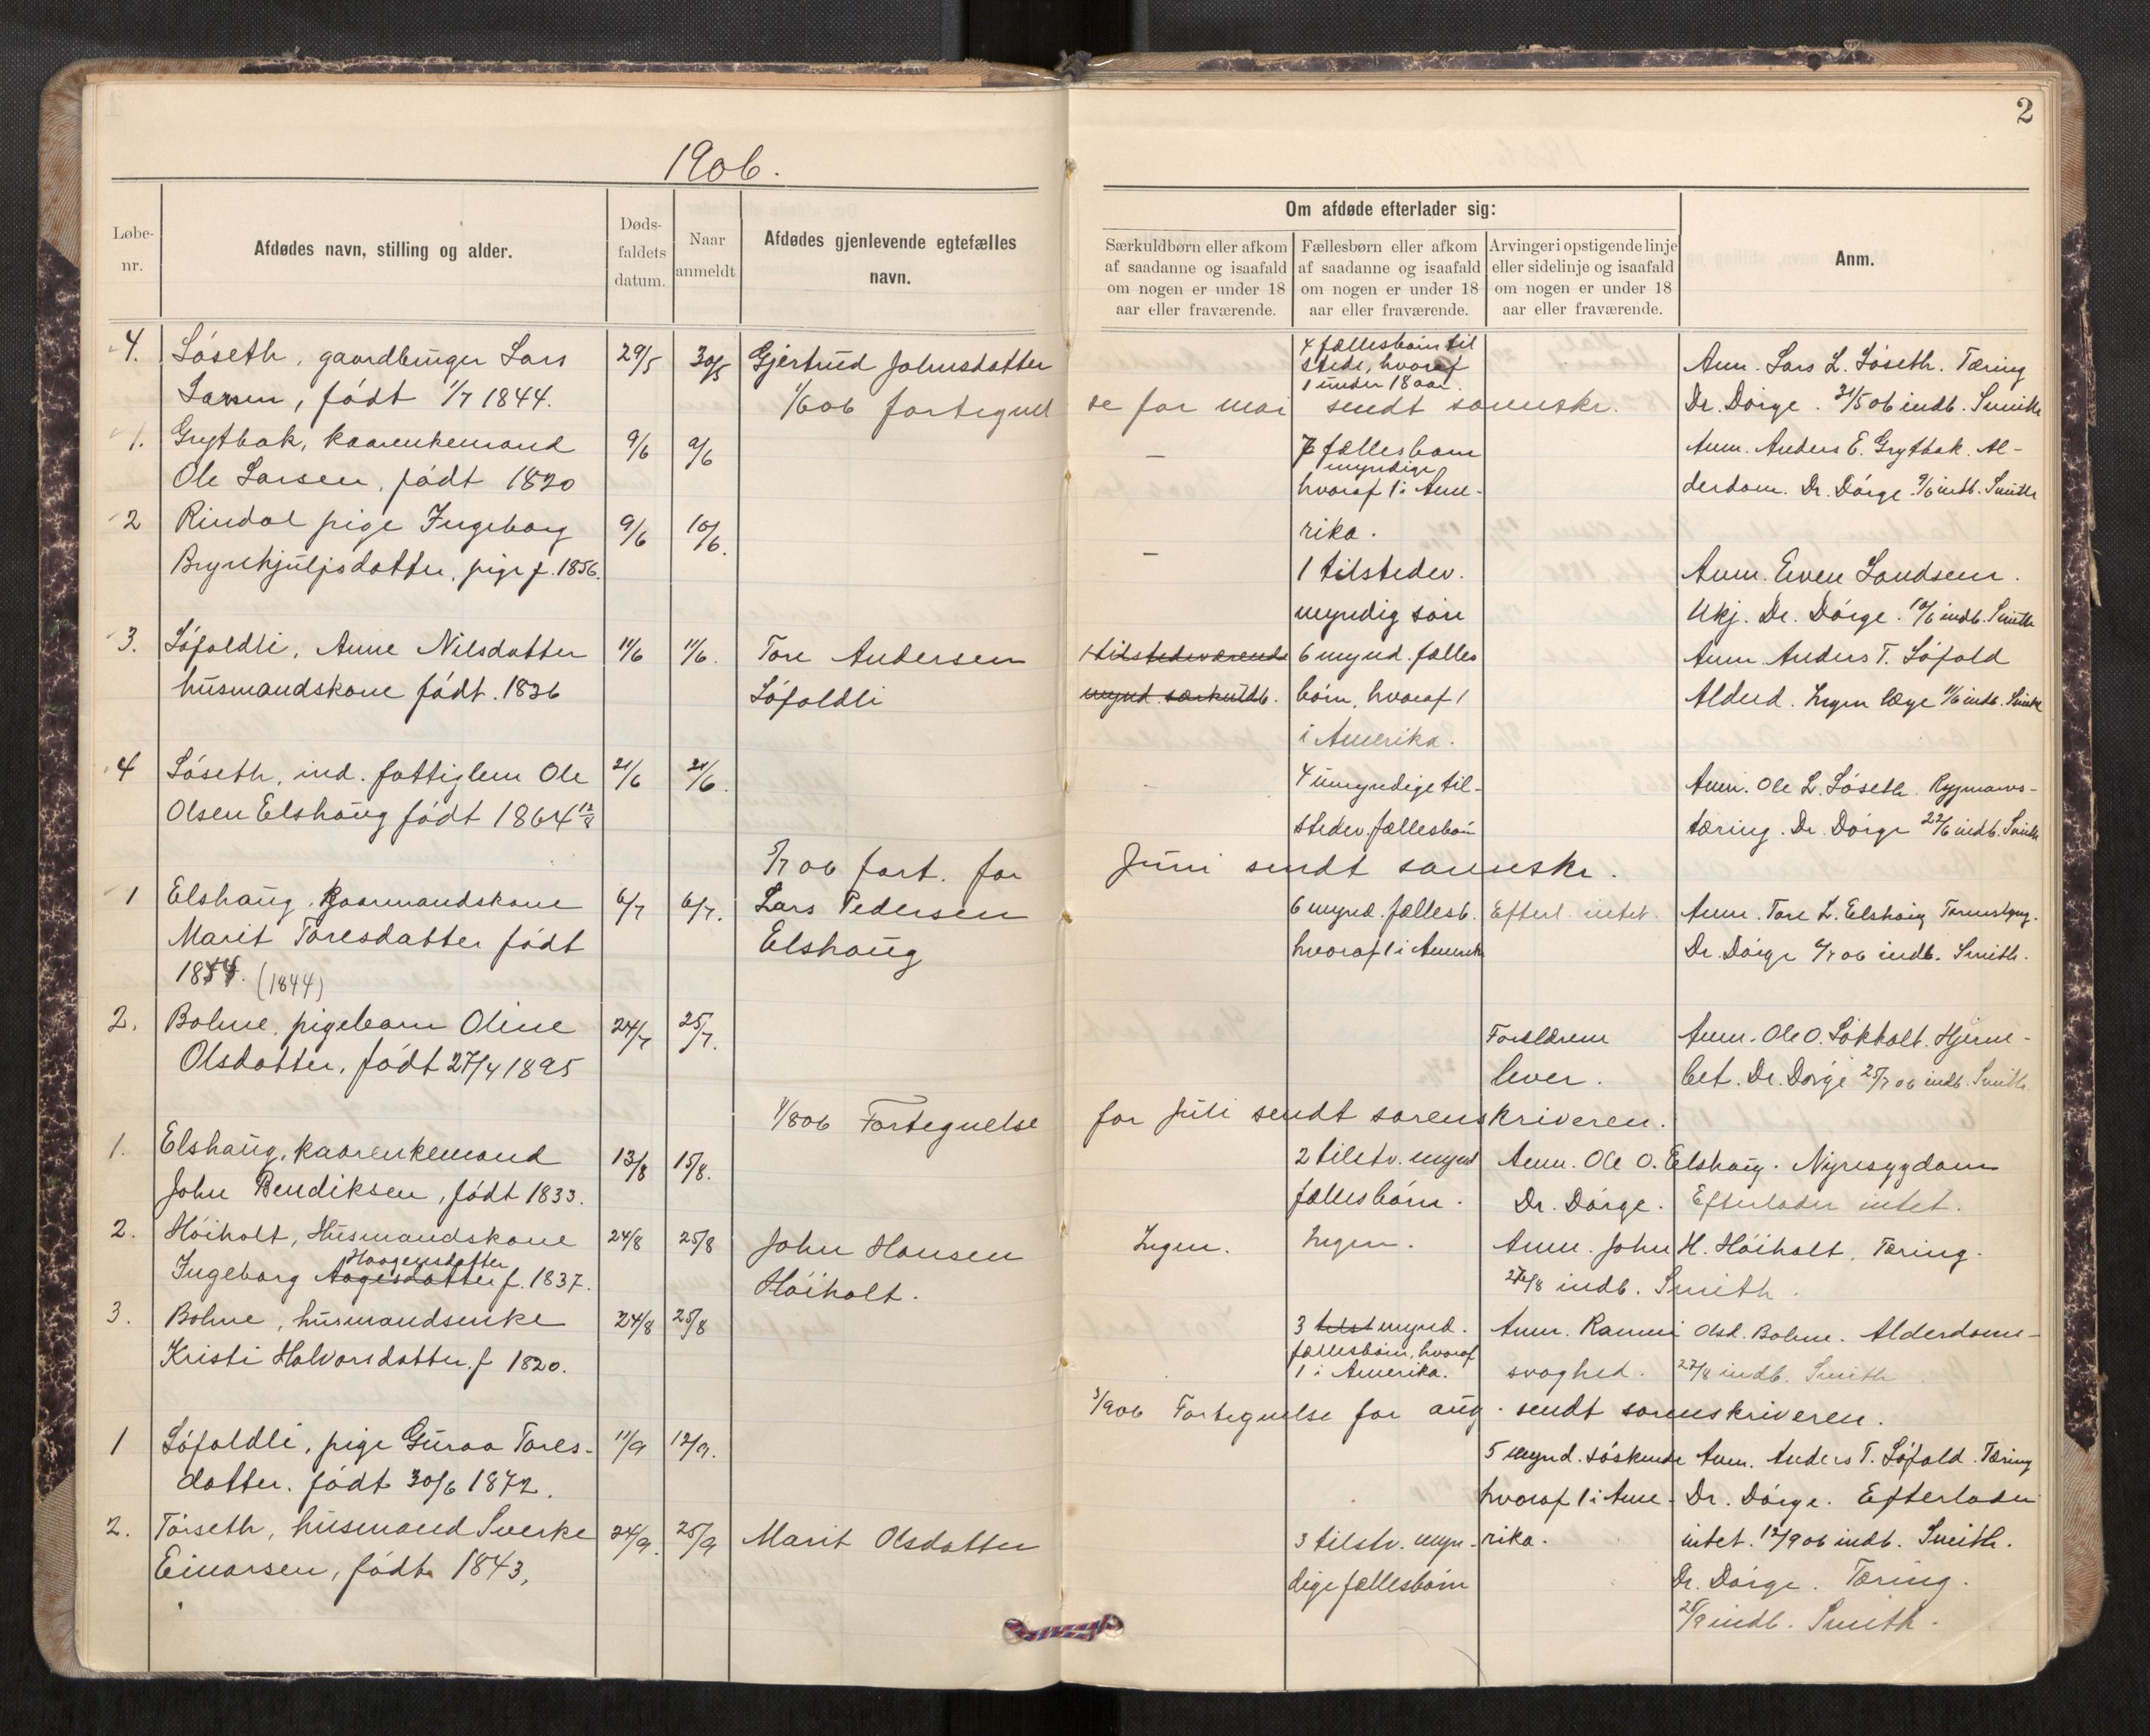 2
1906.
Løbe-
nr.
Afdødes navn, stilling og alder.
Døds-
faldets
datum.
Naar
anmeldt
Afdødes gjenlevende egtefælles
navn.
Om afdøde efterlader sig:
Særkuldbørn eller afkom
af saadanne og isaafald
om nogen er under 18
aar eller fraværende.
Fællesbørn eller afkom
af saadanne og isaafald
om nogen er under 18
aar eller fraværende.
Arvinger i opstigende linje
eller sidelinje og isaafald
om nogen er under 18
aar eller fraværende.
Anm.
4. Løseth, gaardbruger Lars 29/5 30/5 Gjertrud Johnsdatter
Larsen, født 1/7 1844.
4 fællesbørn til
stede, hvoraf
1 under 18 aar.
Anm. Lars L. Løseth. Tæring
Dr. Dørge. 31/5 06 indb. Smith
1/6 06 fortegnel se for mai sendt sorenskr.
1. Grytbak, kaarenkemand 9/6 9/6
Ole Larsen, født 1820
–
7 fællesbørn
myndige
hvoraf 1 i Ame-
rika.
Anm. Anders E. Grytbak. Al-
derdom. Dr. Dørge. 9/6 indb. Smith
2 Rindal pige Ingeborg 9/6 10/6.
Brynhjulfsdatter, pige f. 1856.
–
1 tilstedev.
myndig søn
Anm. Even Landsem.
Ukj. Dr. Dørge. 10/6 indb. Smith
3. Løfaldli, Anne Nilsdatter 11/6 11/6. Tore Andersen
husmandskone født. 1836 Løfaldli
1 tilstedeværende
mynd. særkuldb.
6 mynd. fælles
børn, hvoraf 1
i Amerika.
Anm Anders T. Løfald
Alderd. Ingen læge 11/6 indb. Smith
4 Løseth, ind. fattiglem Ole 21/6 21/6.
Olsen Elshaug født 1864 12/8
4 umyndige til-
stedev. fællesbørn
Anm. Ole L. Løseth. Rygmarvs-
tæring. Dr. Dørge 22/6 indb. Smith
5/7 06 fort. for Juni sendt sorenskr.
1 Elshaug, Gaarmandskone 6/7 6/7. Lars Pedersen
Marit Toresdatter født Elshaug
1844. (1844)
6 mynd. fællesb.
hvoraf 1 i Amerik
Efterl. intet.
Anm. Tore L. Elshaug
Dr. Dørge 6/7 06 indb. Smith.
2. Bolme, pigebarn Oline 24/7 25/7.
Olsdatter, født 27/4 1895
Forældrene
lever.
Anm. Ole O. Løkholt. Hjerne-
bet. Dr. Dørge 25/7 06 indb. Smith.
1/8 06 Fortegnelse for Juli sendt sorenskriveren.
1. Elshaug, kaarenkemand 13/8 15/8.
John Bendiksen, født 1833.
2 tilstv. mynd
fællesbørn.
Anm. Ole O. Elshaug. Nyresygdom
Dr. Dørge. Efterlader intet.
2. Høiholt, Husmandskone 24/8 25/8 John Hansen
Haagensdatter
Ingeborg Aagesdatter f. 1837. Høiholt.
Ingen. Ingen.
Anm. John H. Høiholt, Tæring.
27/8 indb. Smith.
3. Bolme, husmandsenke 24/8 25/8
Kristi Halvorsdatter. f 1820.
3 tilst mynd.
fællesbørn, hvoraf
1 i Amerika.
Anm. Olsd. Bolme. Alderdoms-
svaghed. 27/8 indb. Smith
3/9 06 Fortegnelse for aug. sendt sorenskriveren.
1 Løfaldli, pige Guraa Tores- 11/9 12/9.
datter. født 30/6 1872.
5 mynd. søskende
hvoraf 1 i Ame-
rika.
Anm. Anders T. Løfald. Tæring
Dr. Dørge. Efterlader
intet. 12/9 06 indb. Smith.
2. Tørseth, husmand Sverke 24/9. 25/9 Marit Olsdatter
Einarsen, født 1843,
3 tilstv. myn-
dige fællesbørn
Dr. Dørge. Tæring.
25/9 indb. Smith.